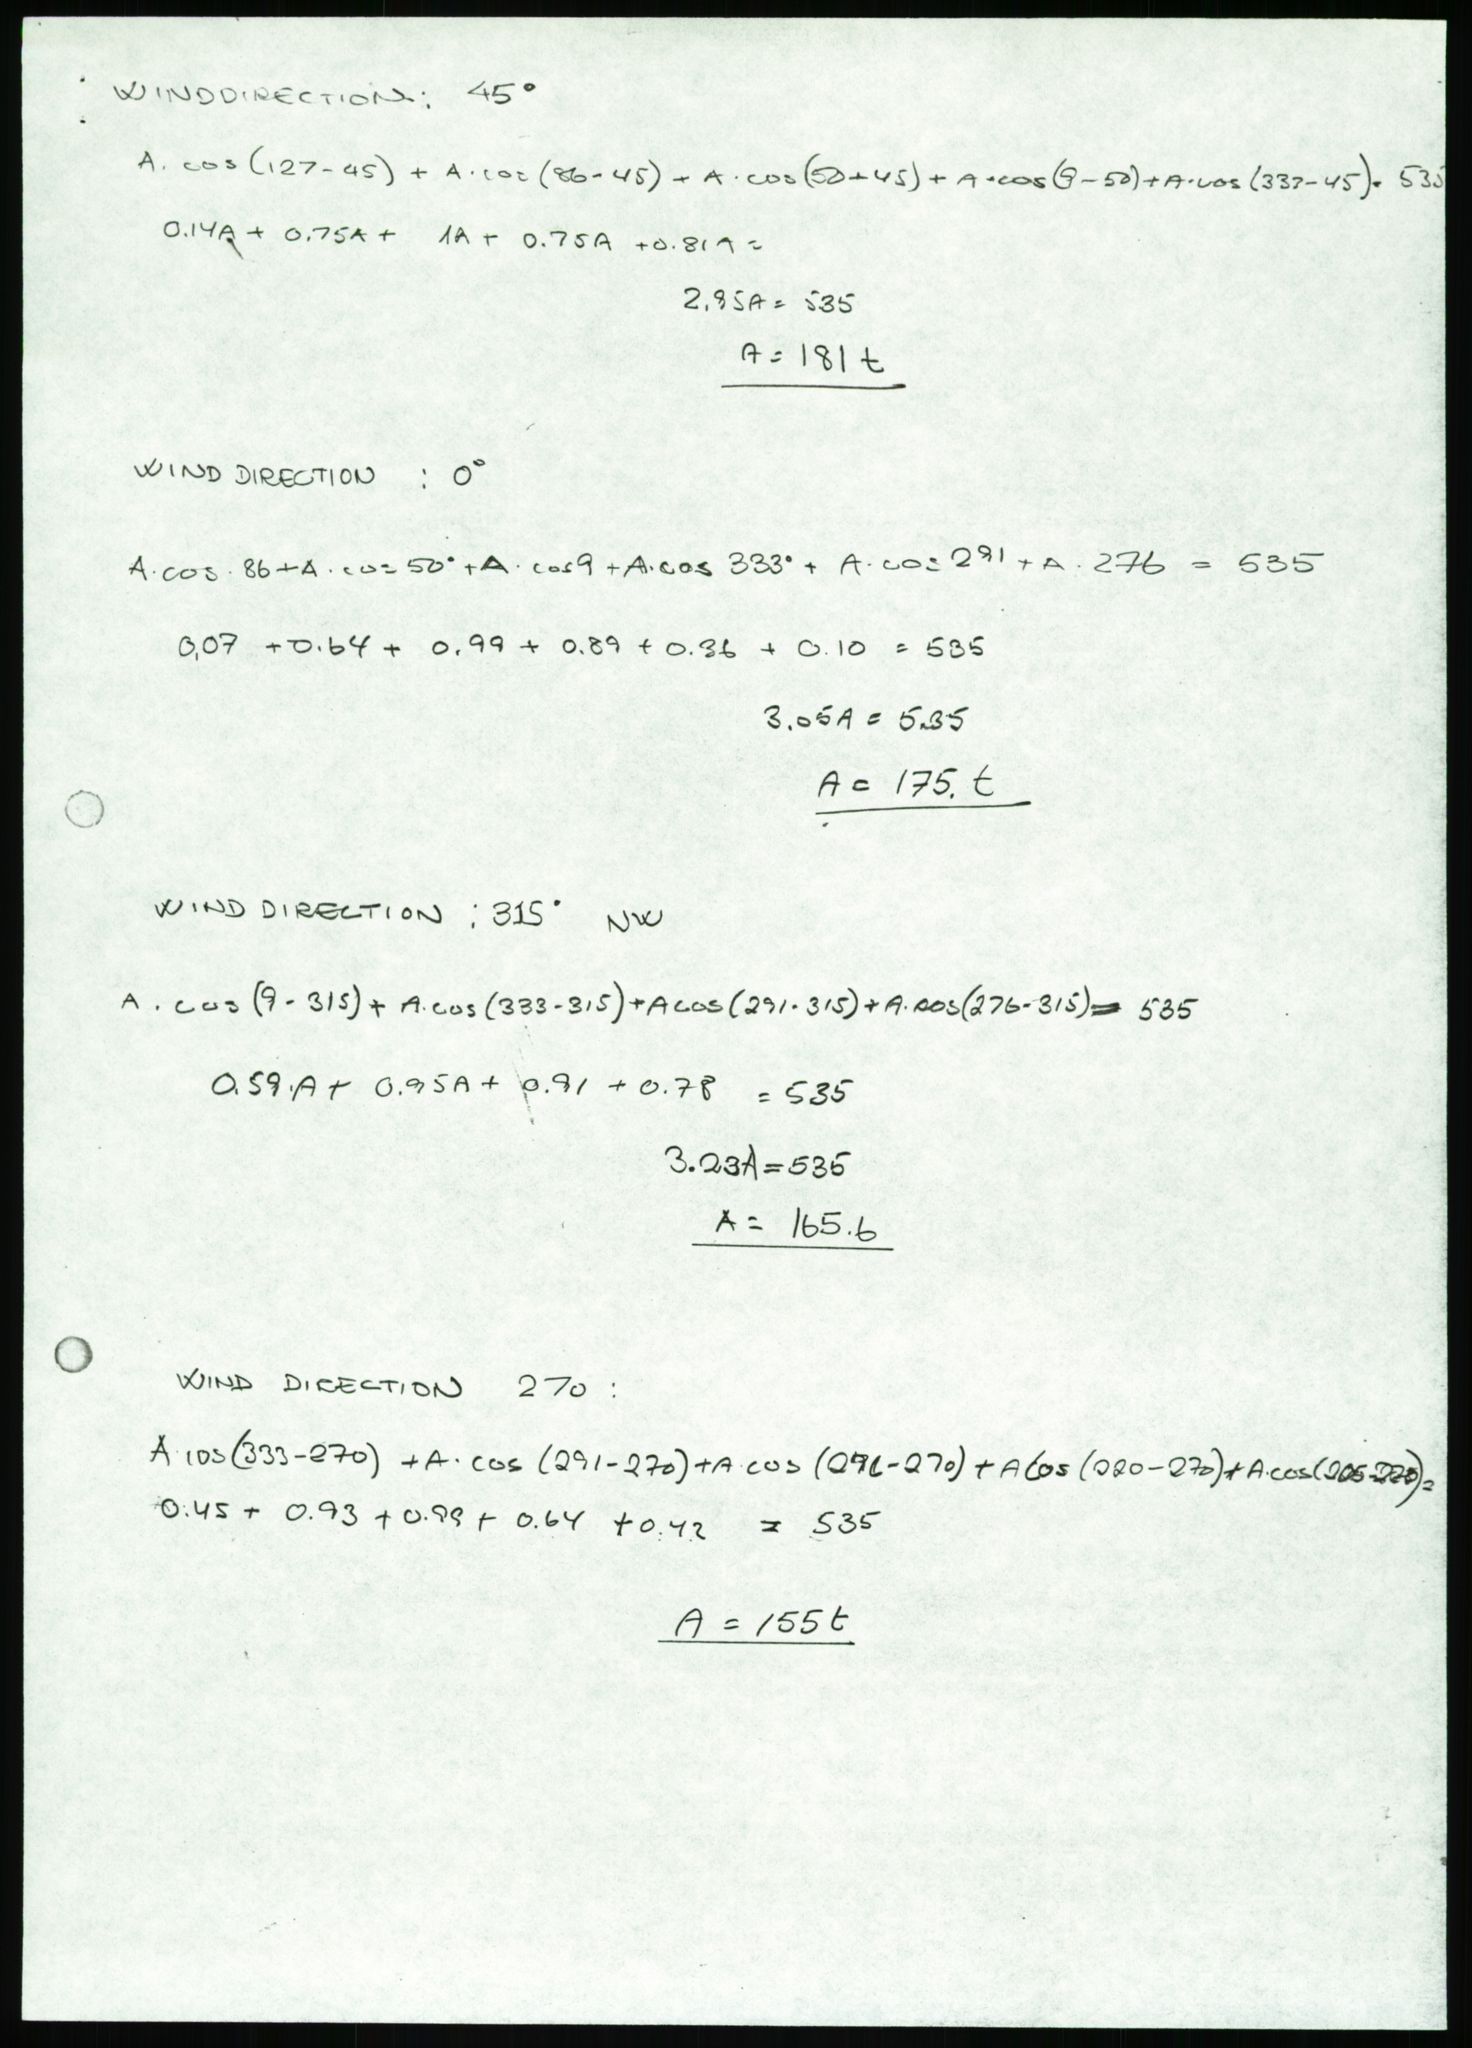 WINDDIRECTION: 45°
A. cos (127-45) + A.cos (86-45) + A.cos (50+45) + A.cos (9-50) + A.cos (333-45). 535
0.14A + 0.75A + 1A + 0.75A +0.81A =
2.95A = 535
A = 181 t
WIND DIRECTION : 0°
A.cos.86+A.cos 50°+A.cos9+A.cos 333°+ A.cos 291+A.276 = 535
0,07 +0.64+ 0.99+ 0.89+0.36 + 0.10 = 535
3.05A = 535
A = 175. t
WIND DIRECTION : 315° NW
A. cos (9-315)+ A.cos(333-315)+Acos(291-315)+A.cos(276-315)= 535
0.59.A+ 0.95A+ 0.91 +0.78 = 535
3.23A=535
A = 165.6
WIND DIRECTION 270 :
A cos(333-270) +A.cos (291-270)+A cos (276-270)+ACos (220-270)+A.cos( )=
0.45+ 0.93 +0.99+ 0.64 +0.42 = 535
A = 155t